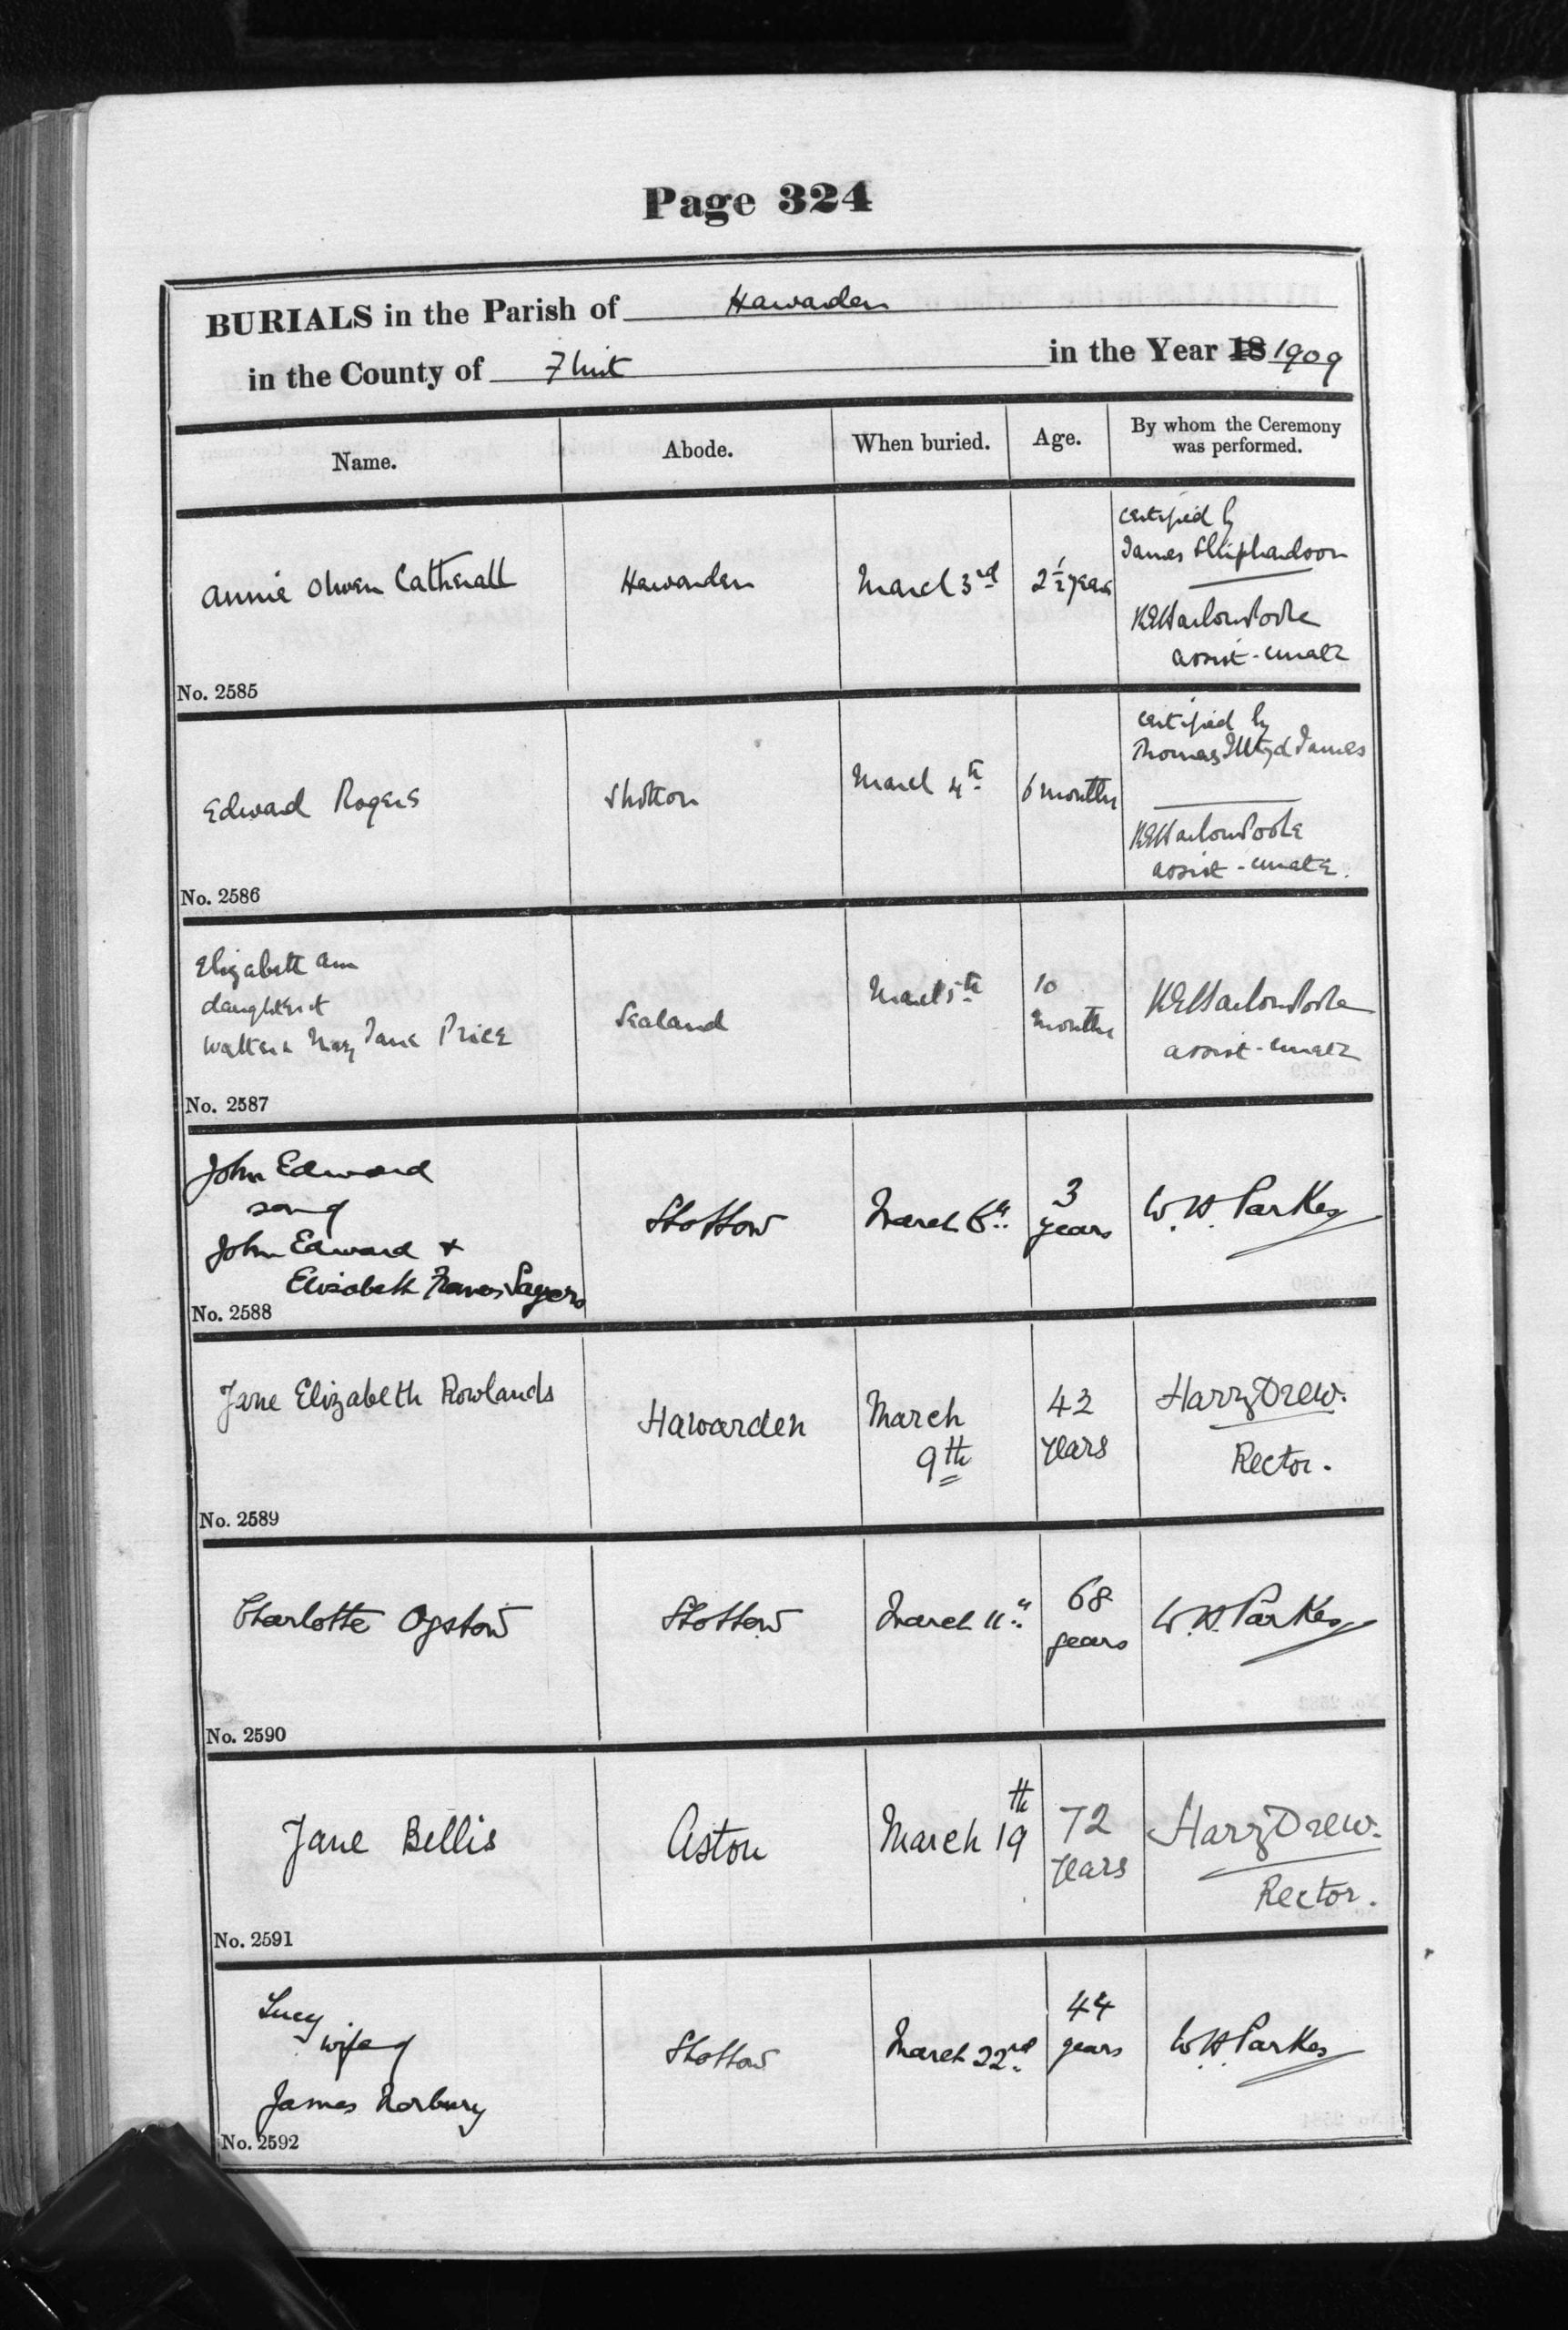 Page 324
BURIALS in the Parish of Hawarden
in the County of Flint in the Year 18 1909
Name. Abode. When buried. Age. By whom the Ceremony was performed.
Annie Olwen Catherall Hawarden March 3rd 2½ years
certified by
James
assist-curate
No. 2585
Edward Rogers Shotton March 4th 6 months
certified by
Thomas James
assist-curate.
No. 2586
Elizabeth Ann
daughter of
Walter & Mary Jane Price Sealand March 5th 10 months
assist-curate
No. 2587
John Edward
son of
John Edward +
Elizabeth Frances Sayers Shotton March 6th 3 years W. H. Parkes
No. 2588
Jane Elizabeth Rowlands Hawarden March 9th 42 years Harry Drew.
Rector.
No. 2589
Charlotte Ogston Shotton March 11th 68 years W. H. Parkes
No. 2590
Jane Bellis Aston March 19th 72 years Harry Drew.
Rector.
No. 2591
Lucy
wife of
James Norbury Shotton March 22nd 44 years W. H. Parkes
No. 2592